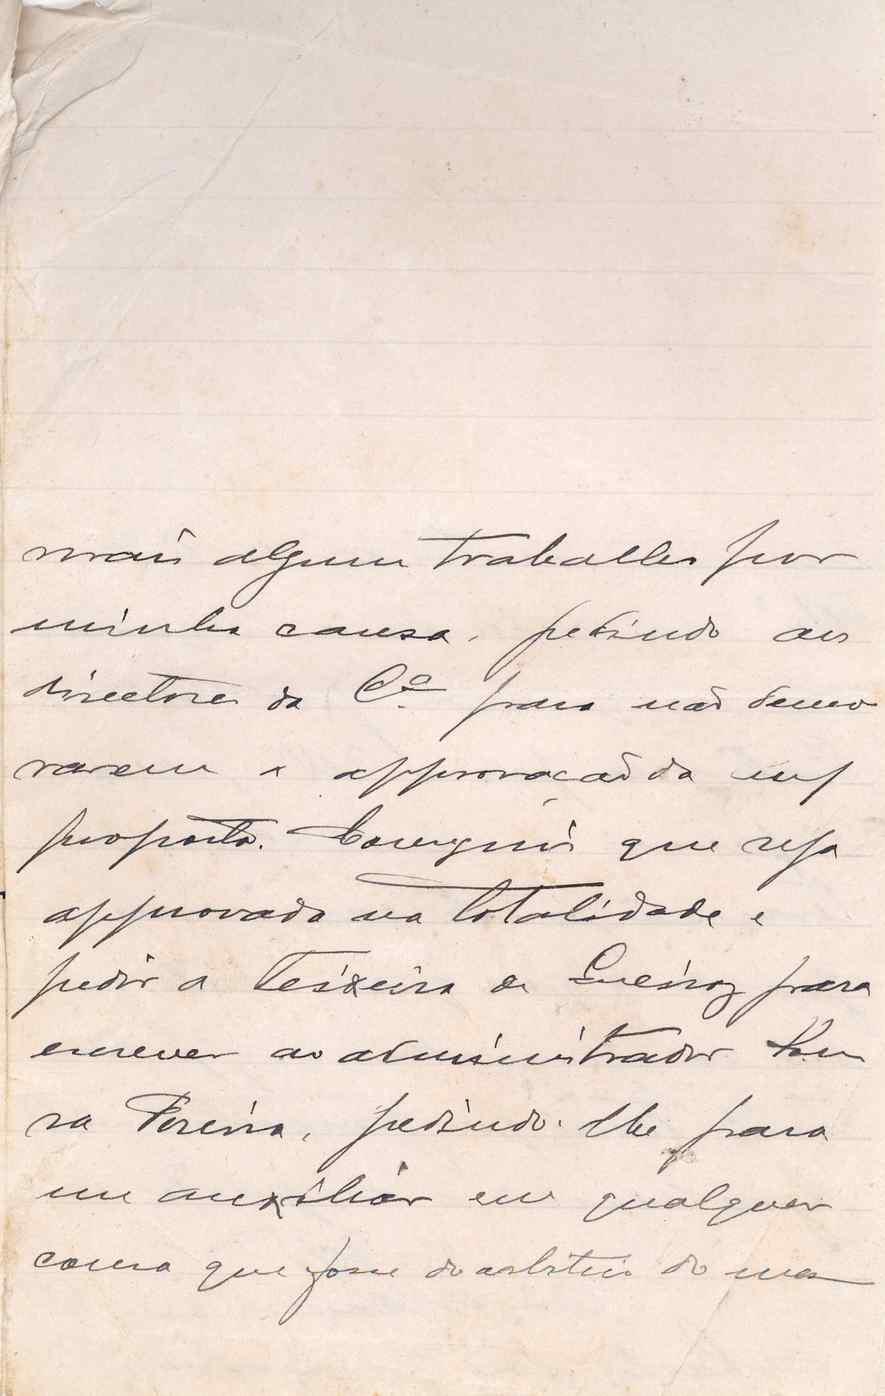 mais algum trabalho por
minha causa, pedindo aos
directores da Cª para não demo
rarem a approvação da
proposta. Consegui que seja
approvada na totalidade e
pedir a Teixeira de Queiroz para
escrever ao administrador Sou
sa Pereira, pedindo-lhe para
me auxiliar em qualquer
cousa que fosse do arbitrio do mes